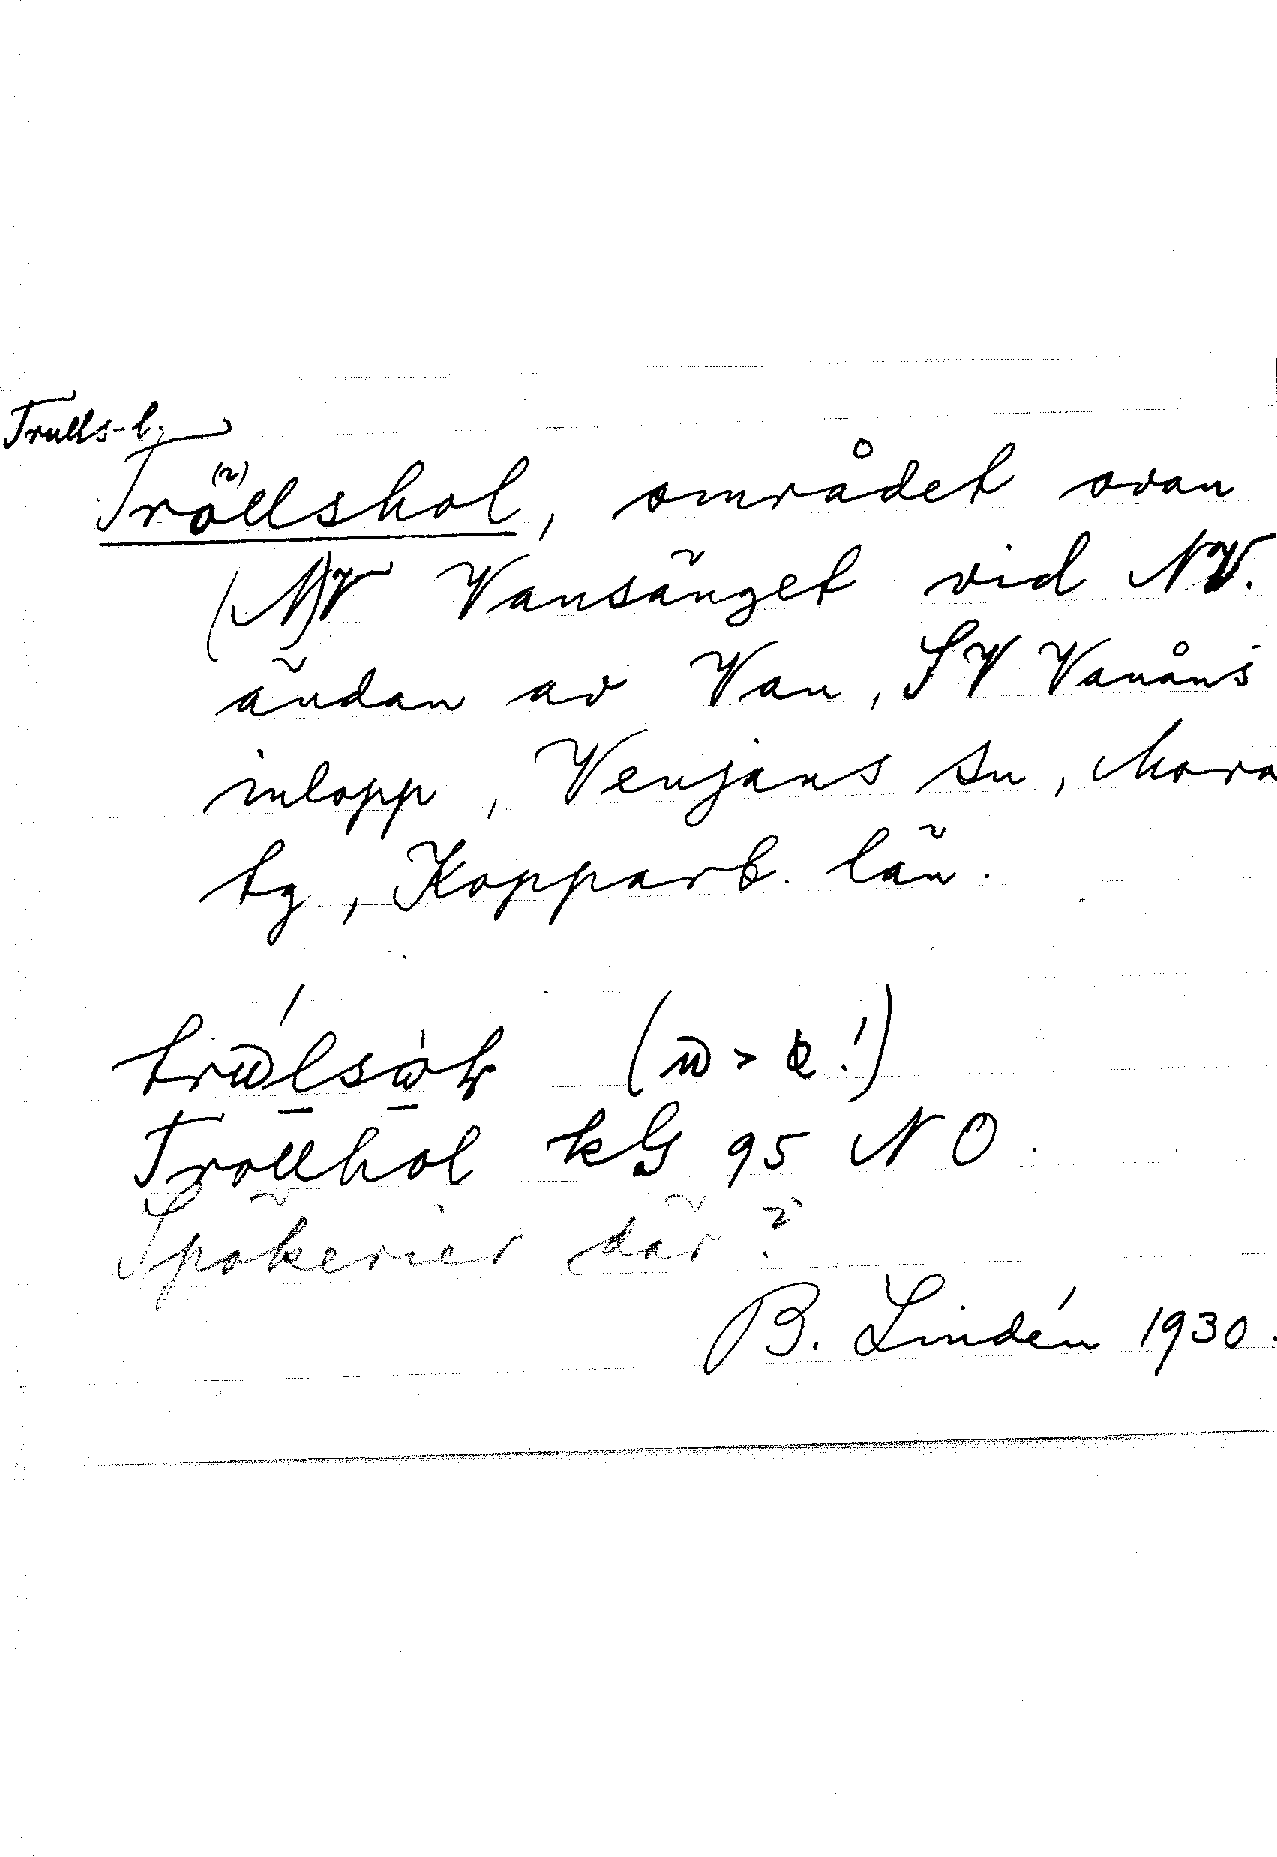 Trulls-h.
Tröllshol, området ovan
(N)V Vansänget vid NV.
ändan av Van, SV Vanåns
inlopp, Venjans sn, Mora
tg, Kopparb. län.
Trollhol kG 95 NO
Spökerier där?
B. Lindén 1930.